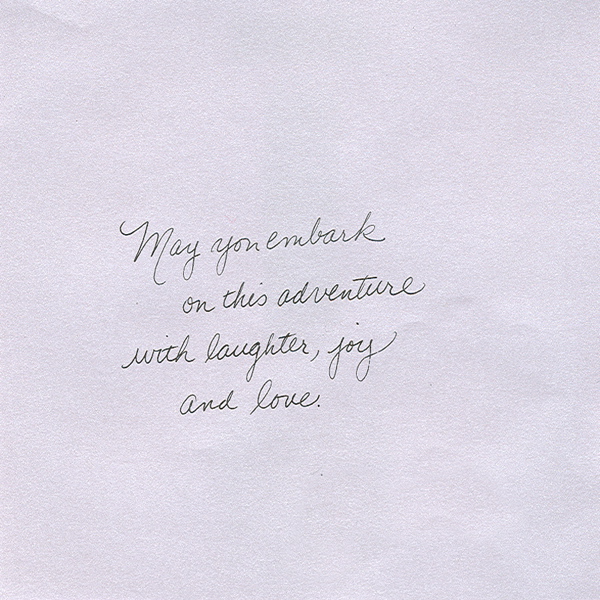 May you embark
on this adventure
with laughter, joy
and love.